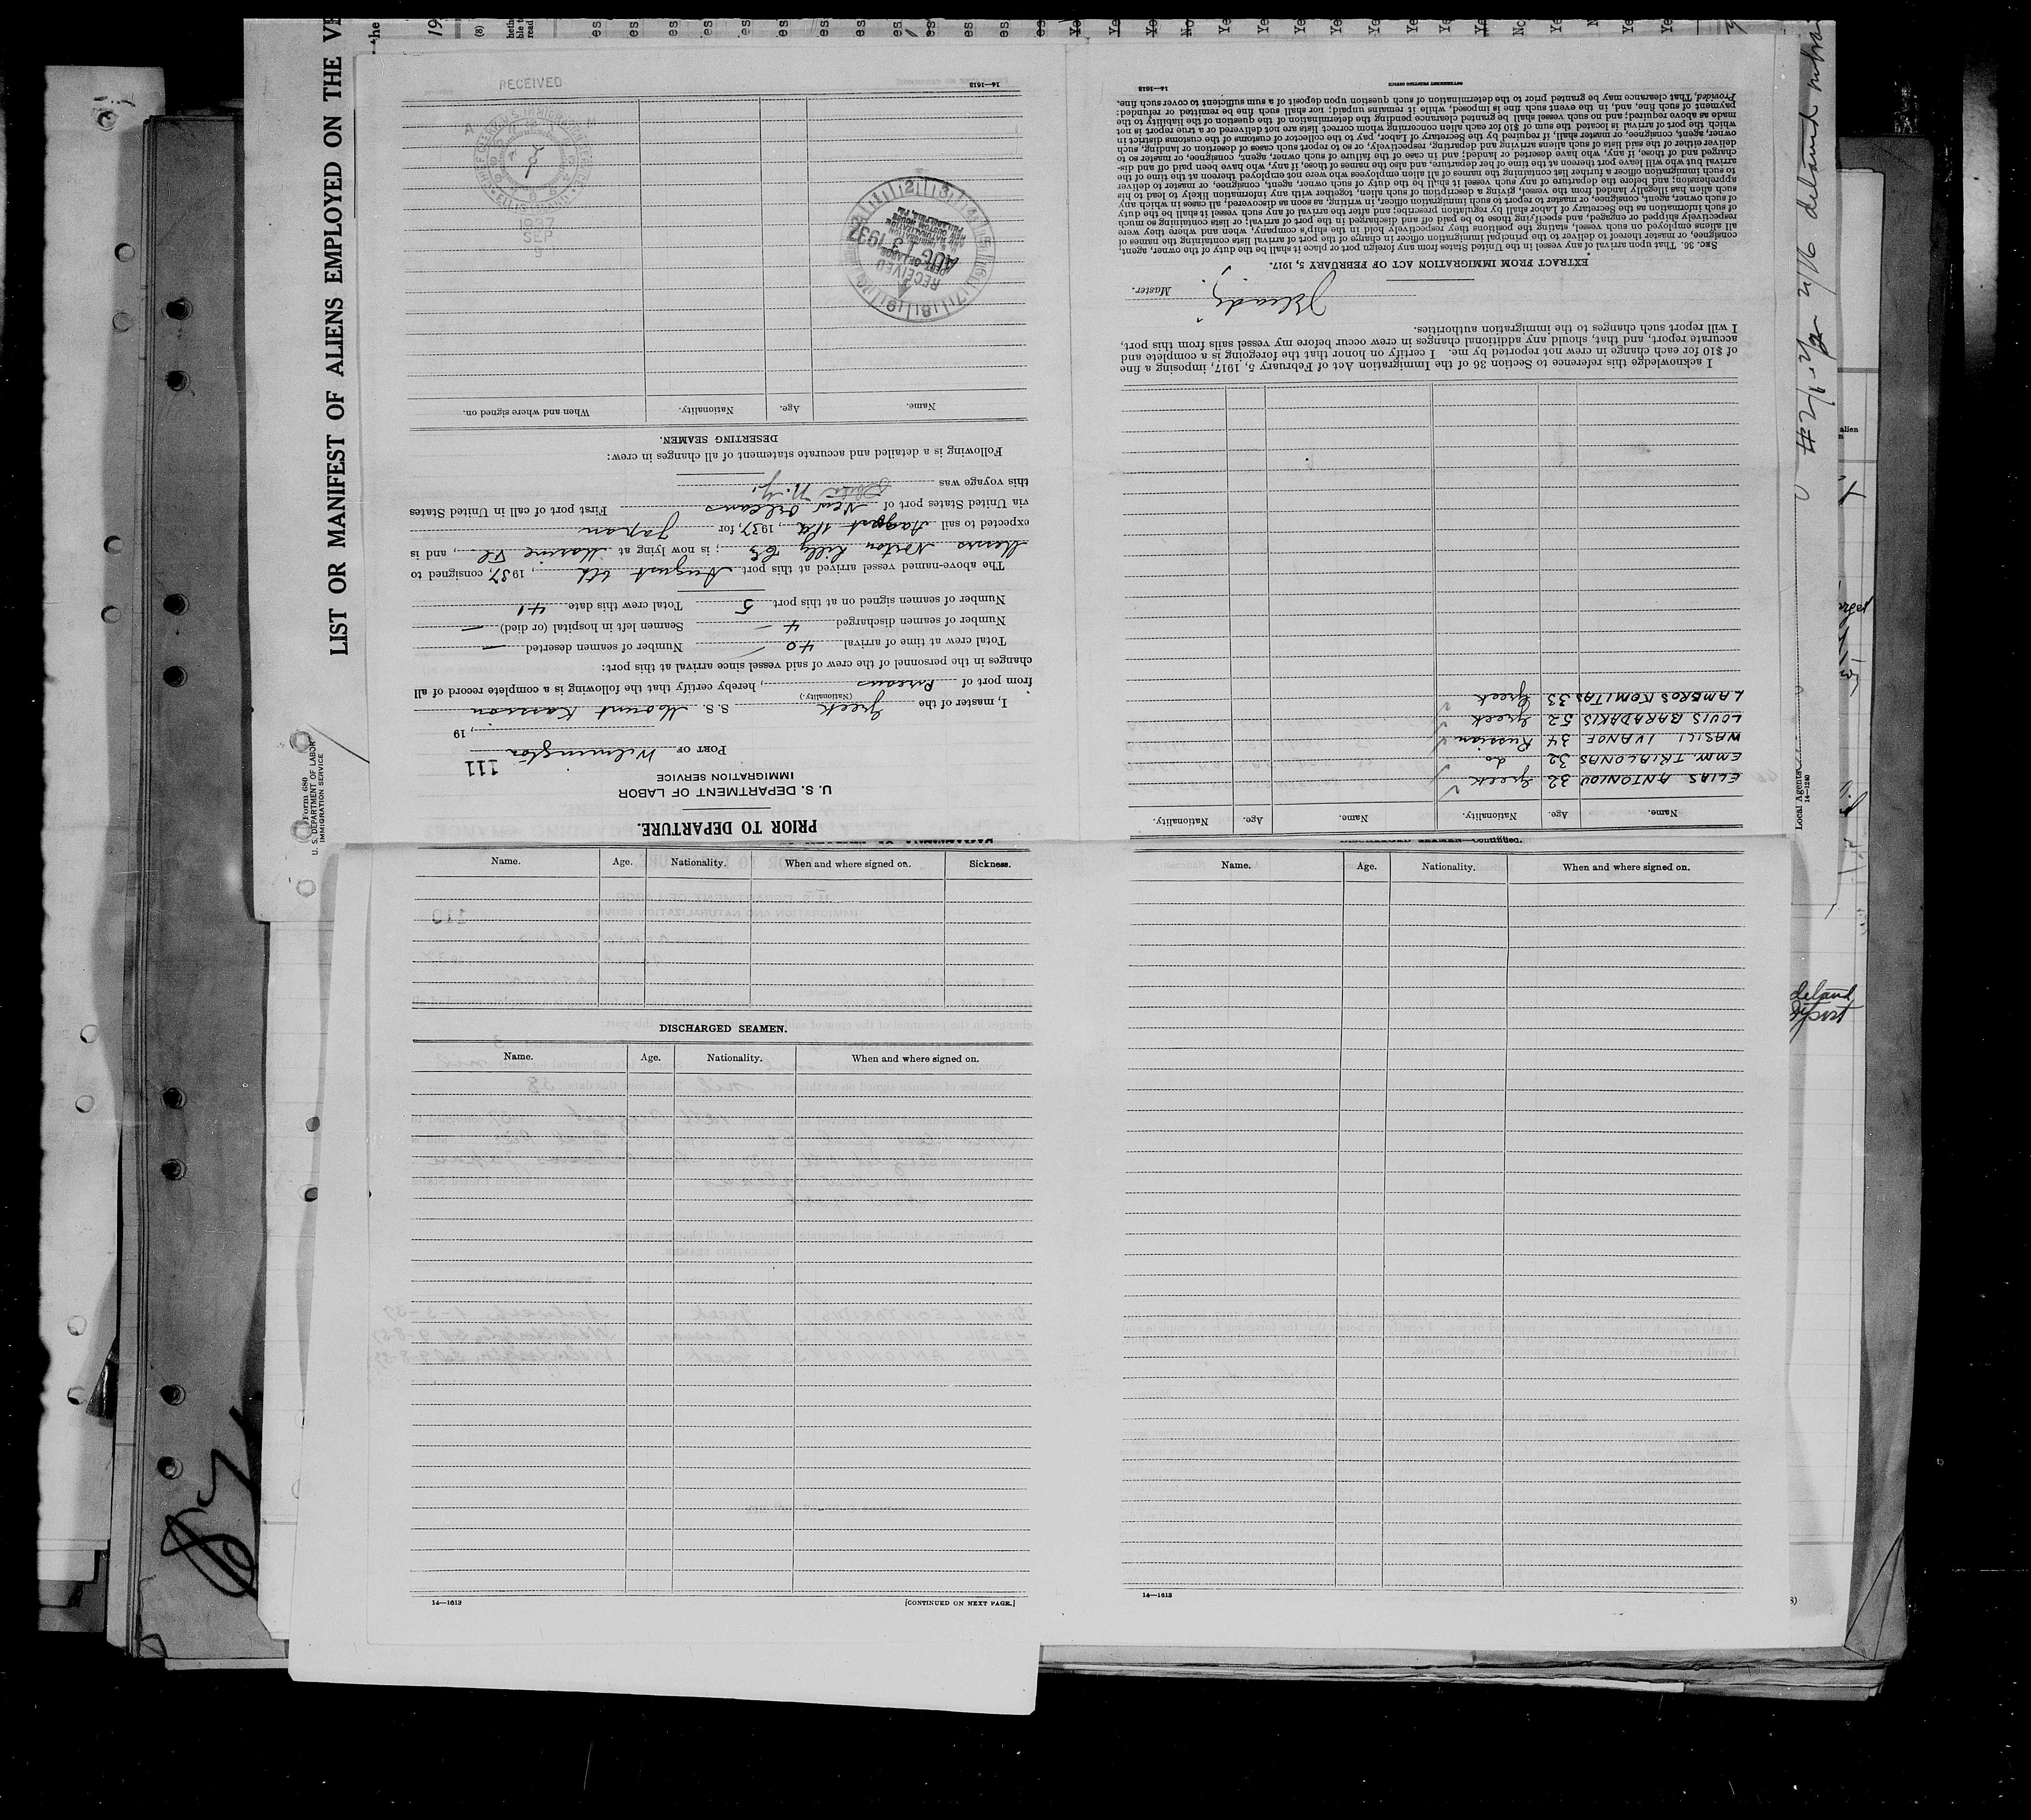 LIST OR MANIFEST OF ALIENS EMPLOYED ON THE
Form 680
U. S. DEPARTMENT OF LABOR
IMMIGRATION SERVICE
PRIOR TO DEPARTURE.
U. S. DEPARTMENT OF LABOR
IMMIGRATION SERVICE
111
PORT OF Wilmington
, 19
I, master of the Greek S. S. Mount Kassion
(Nationality.)
from port of Pireaus, hereby certify that the following is a complete record of all
changes in the personnel of the crew of said vessel since arrival at this port:
Total crew at time of arrival 40 Number of seamen deserted —
Number of seamen discharged 4 Seamen left in hospital (or died) —
Number of seamen signed on at this port 5 Total crew this date 41
The above-named vessel arrived at this port August 6th, 1937, consigned to
Messrs Norton Lilly Co; is now lying at Marine Tl, and is
expected to sail August 11th, 1937, for Japan
via United States port of New Orleans First port of call in United States
this voyage was N. Y.
Following is a detailed and accurate statement of all changes in crew:
DESERTING SEAMEN.
Name. Age. Nationality. When and where signed on.
RECEIVED
AUG 13 1937
DEPT. OF LABOR
PHILADELPHIA, PA.
RECEIVED
1937
SEP
9
14—1613
Name. Age. Nationality. Name. Age. Nationality.
ELIAS ANTONIOU 32 Greek
EMM. TRIALONAS 32 do
WASILI IVANOF 34 Russian
LOUIS BARADAKIS 52 Greek
LAMBROS KOMITAS 33 Greek
I acknowledge this reference to Section 36 of the Immigration Act of February 5, 1917, imposing a fine
of $10 for each change in crew not reported by me. I certify on honor that the foregoing is a complete and
accurate report, and that, should any additional changes in crew occur before my vessel sails from this port,
I will report such changes to the immigration authorities.
Master.
EXTRACT FROM IMMIGRATION ACT OF FEBRUARY 5, 1917.
Sec. 36. That upon arrival of any vessel in the United States from any foreign port or place it shall be the duty of the owner, agent,
consignee, or master thereof to deliver to the principal immigration officer in charge of the port of arrival lists containing the names of
all aliens employed on such vessel, stating the positions they respectively hold in the ship's company, when and where they were
respectively shipped or engaged, and specifying those to be paid off and discharged in the port of arrival; or lists containing so much
of such information as the Secretary of Labor shall by regulation prescribe; and after the arrival of any such vessel it shall be the duty
of such owner, agent, consignee, or master to report to such immigration officer, in writing, as soon as discovered, all cases in which any
such alien has illegally landed from the vessel, giving a description of such alien, together with any information likely to lead to his
apprehension; and before the departure of any such vessel it shall be the duty of such owner, agent, consignee, or master to deliver
to such immigration officer a further list containing the names of all alien employees who were not employed thereon at the time of the
arrival but who will leave port thereon at the time of her departure, and also the names of those, if any, who have been paid off and dis-
charged and of those, if any, who have deserted or landed; and in case of the failure of such owner, agent, consignee, or master so to
deliver either of the said lists of such aliens arriving and departing, respectively, or so to report such cases of desertion or landing, such
owner, agent, consignee, or master shall, if required by the Secretary of Labor, pay to the collector of customs of the customs district in
which the port of arrival is located the sum of $10 for each alien concerning whom correct lists are not delivered or a true report is not
made as above required; and no such vessel shall be granted clearance pending the determination of the question of the liability to the
payment of such fine, and, in the event such fine is imposed, while it remains unpaid; nor shall such fine be remitted or refunded:
Provided, That clearance may be granted prior to the determination of such question upon deposit of a sum sufficient to cover such fine.
14—1613
GOVERNMENT PRINTING OFFICE
Name. Age. Nationality. When and where signed on. Sickness.
DISCHARGED SEAMEN.
Name. Age. Nationality. When and where signed on.
14—1613 [CONTINUED ON NEXT PAGE.]
DISCHARGED SEAMEN—Continued.
Name. Age. Nationality. When and where signed on.
14—1613
Local Agents
14—1240